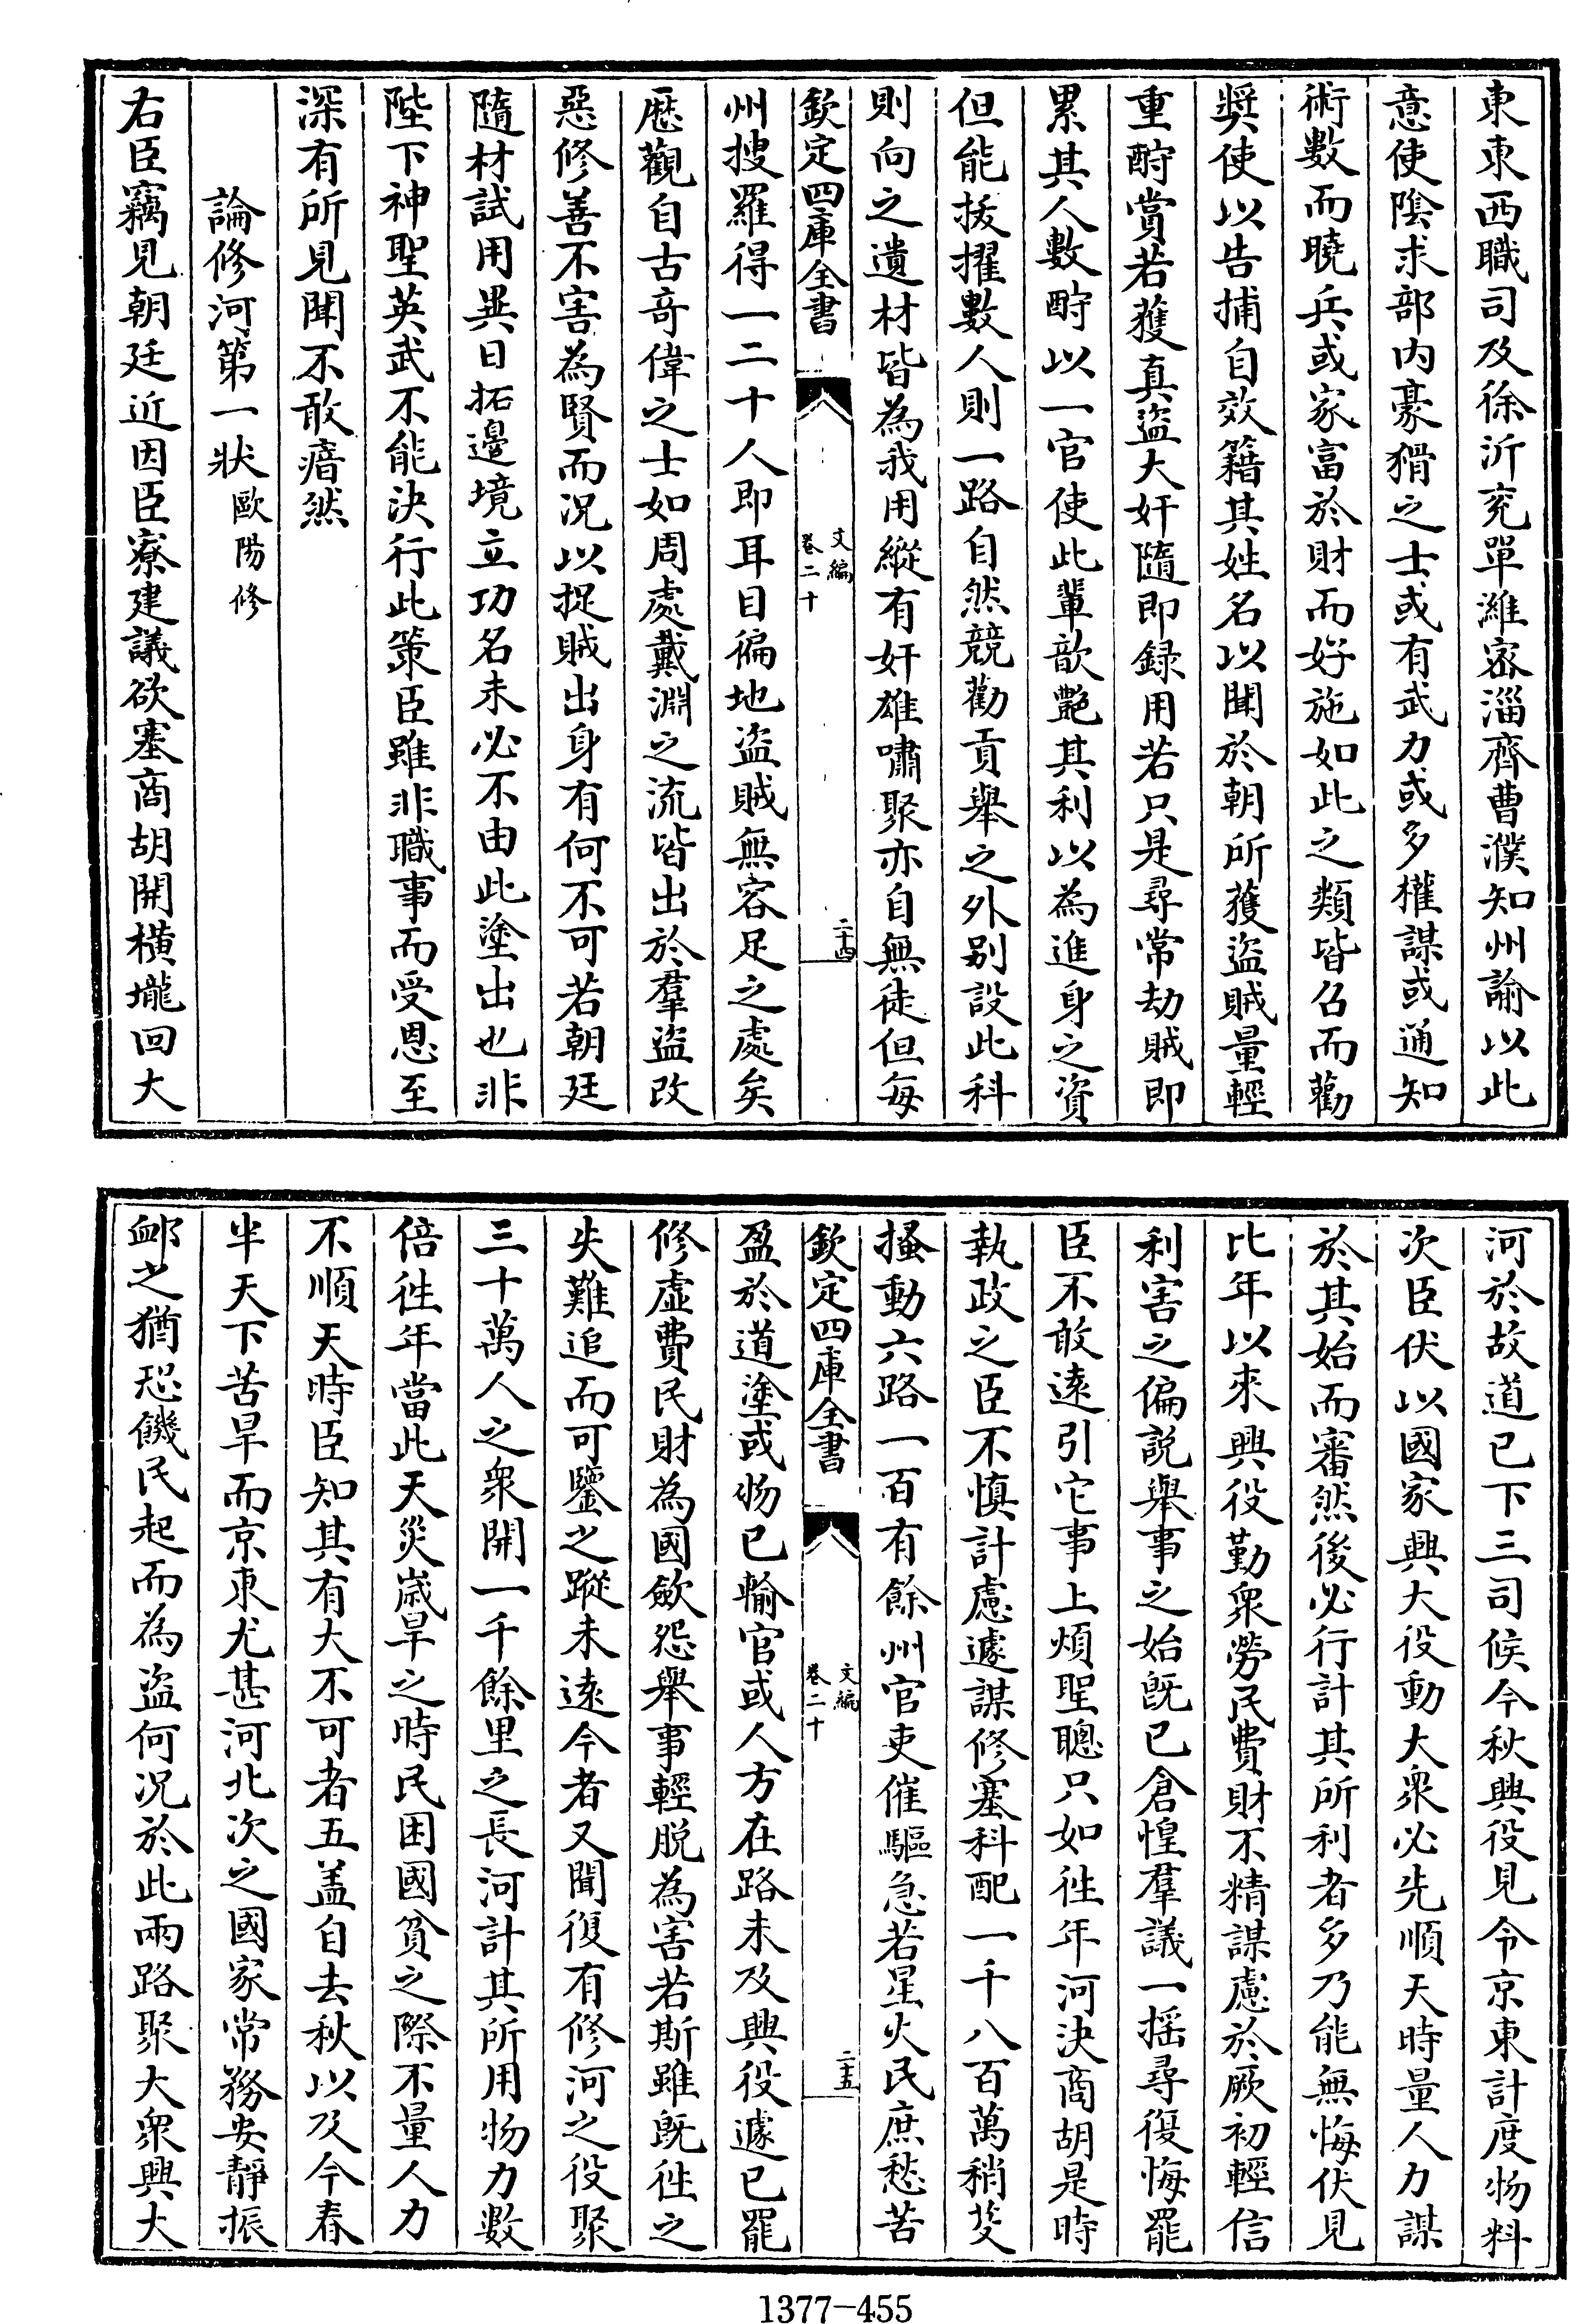 東東西職司及徐沂兖單濰密淄齊曹濮知州諭以此
意使隂求部内豪猾之士或有武力或多權謀或通知
術數而曉兵或家富於財而好施如此之類皆召而勸
奬使以告捕自效籍其姓名以聞於朝所獲盜賊量輕
重酧賞若獲真盜大奸隨即録用若只是尋常劫賊即
累其人數酧以一官使此輩歆艷其利以為進身之資
但能拔擢數人則一路自然競勸貢舉之外别設此科
則向之遺材皆為我用縱有奸雄嘯聚亦自無徒但每
欽定四庫全書
文編
卷二十
二十四
州搜羅得一二十人即耳目徧地盜賊無容足之處矣
歴觀自古奇偉之士如周處戴淵之流皆出於羣盜改
惡修善不害為賢而况以捉賊出身有何不可若朝廷
隨材試用異日拓邊境立功名未必不由此塗出也非
陛下神聖英武不能決行此策臣雖非職事而受恩至
深有所見聞不敢瘖然
論修河第一狀歐陽修
右臣竊見朝廷近因臣寮建議欲塞商胡開横壠回大
河於故道已下三司候今秋興役見令京東計度物料
次臣伏以國家興大役動大衆必先順天時量人力謀
於其始而審然後必行計其所利者多乃能無悔伏見
比年以來興役勤衆勞民費財不精謀慮於厥初輕信
利害之偏説舉事之始既已倉惶羣議一揺尋復悔罷
臣不敢逺引它事上煩聖聰只如徃年河決商胡是時
執政之臣不慎計慮遽謀修塞科配一千八百萬稍芟
搔動六路一百有餘州官吏催驅急若星火民庶愁苦
欽定四庫全書
文編
卷二十
二十五
盈於道塗或物已輸官或人方在路未及興役遽已罷
修虚費民財為國歛怨舉事輕脱為害若斯雖既徃之
失難追而可鑒之蹤未逺今者又聞復有修河之役聚
三十萬人之衆開一千餘里之長河計其所用物力數
倍徃年當此天災歲旱之時民困國貧之際不量人力
不順天時臣知其有大不可者五盖自去秋以及今春
半天下苦旱而京東尤甚河北次之國家常務安靜振
䘏之猶恐饑民起而為盜何况於此兩路聚大衆興大
1377-455